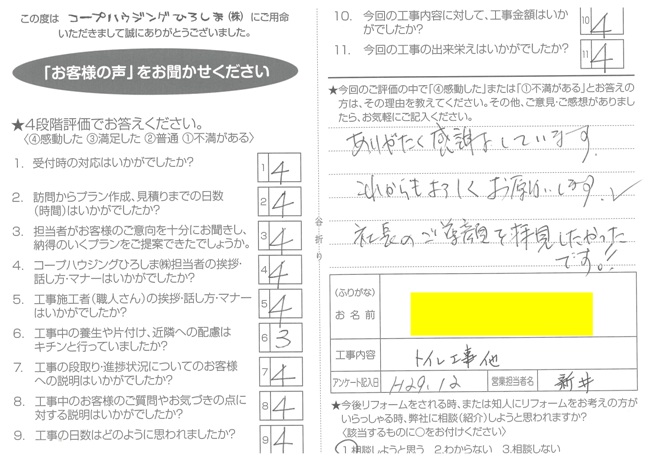 この度は コープハウジングひろしま(株) にご用命
いただきまして誠にありがとうございました。
「お客様の声」をお聞かせください
★4段階評価でお答えください。
〈④感動した ③満足した ②普通 ①不満がある〉
1. 受付時の対応はいかがでしたか?
1 4
2. 訪問からプラン作成、見積りまでの日数
(時間)はいかがでしたか?
2 4
3. 担当者がお客様のご意向を十分にお聞きし、
納得のいくプランをご提案できたでしょうか。
3 4
4. コープハウジングひろしま㈱担当者の挨拶・
話し方・マナーはいかがでしたか?
4 4
5. 工事施工者(職人さん)の挨拶・話し方・マナー
はいかがでしたか?
5 4
6. 工事中の養生や片付け、近隣への配慮は
キチンと行っていましたか?
6 3
7. 工事の段取り・進捗状況についてのお客様
への説明はいかがでしたか?
7 4
8. 工事中のお客様のご質問やお気づきの点に
対する説明はいかがでしたか?
8 4
9. 工事の日数はどのように思われましたか?
9 4
谷折り
10. 今回の工事内容に対して、工事金額はいか
がでしたか?
10 4
11. 今回の工事の出来栄えはいかがでしたか?
11 4
★今回のご評価の中で「④感動した」または「①不満がある」とお答え
の方は、その理由を教えてください。その他、ご意見・ご感想がありまし
たら、お気軽にご記入ください。
ありがたく感謝しています。
これからもよろしくお願いします。
社長のご尊顔を拝見したかった
です!!
(ふりがな)
お名前
工事内容 トイレ工事他
アンケート記入日 H29.12 営業担当者名 新井
★今後リフォームをされる時、または知人にリフォームをお考えの方が
いらっしゃる時、弊社に相談(紹介)しようと思われますか?
〈該当するものに○をお付けください〉
1.相談しようと思う 2.わからない 3.相談しない